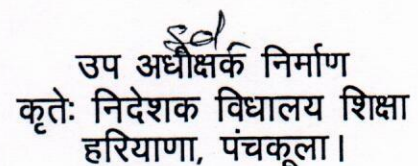 sd
उप अधीक्षक निर्माण
कृतेः निदेशक विधालय शिक्षा
हरियाणा, पंचकूला।